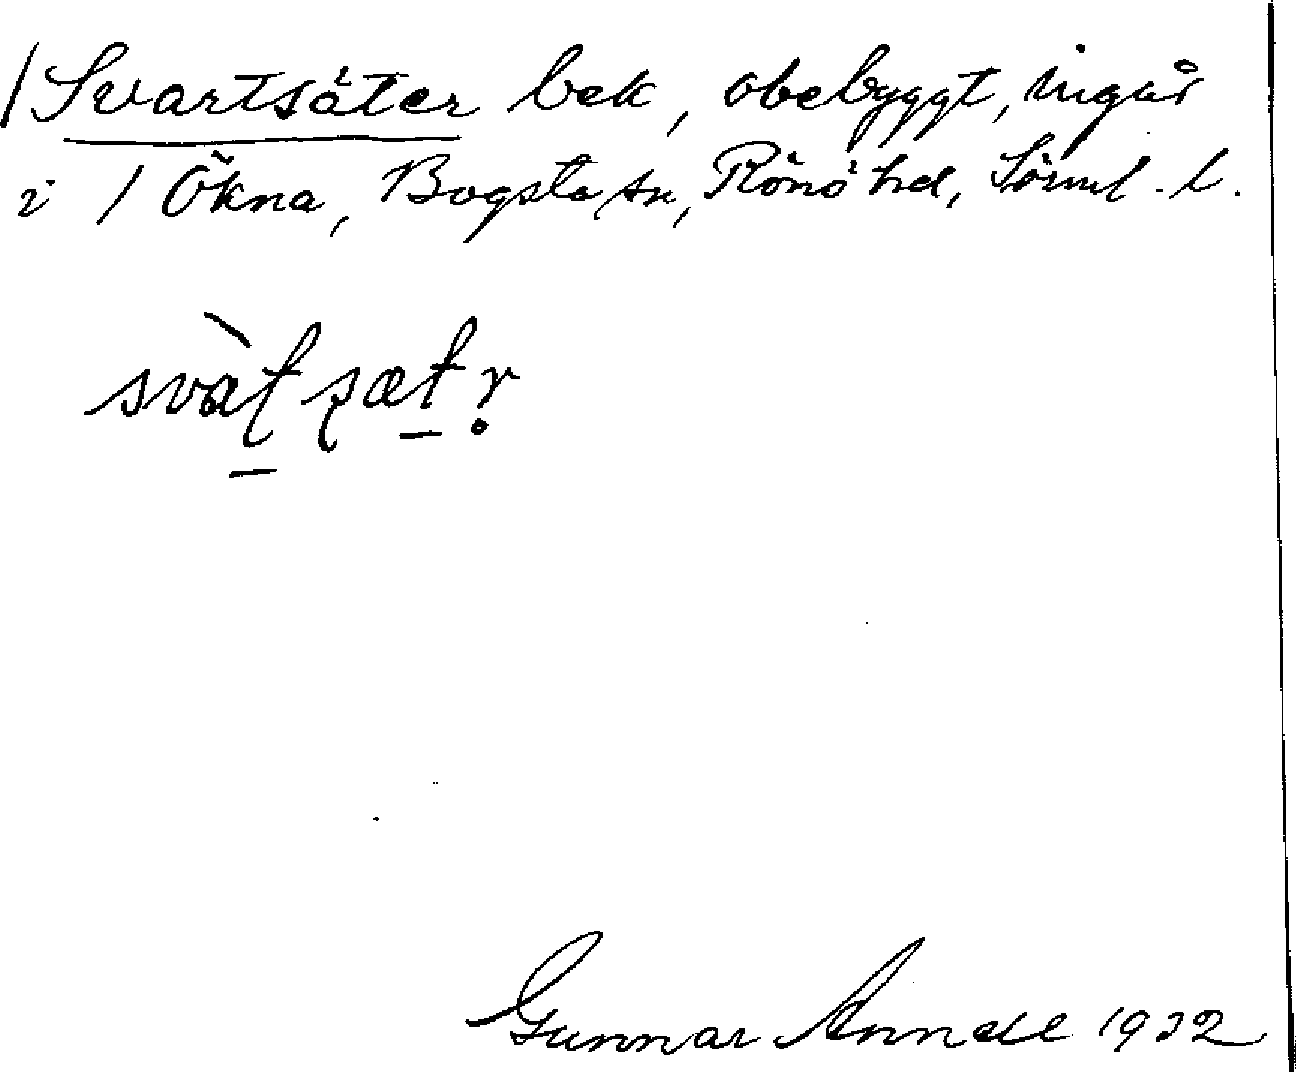 / Svartsäter bek, obebyggt, ingår
i / Ökna, Bogsta sn, Rönö hd, Sörml. l.
svàt sætr
Gunnar Annell 1932